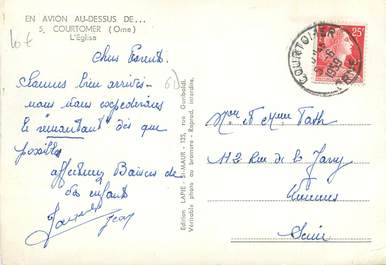 EN AVION AU-DESSUS DE...
5. COURTOMER (Orne)
L'Église
Chers Parents
Sommes bien arrivés
nous vous expédierons
le dès que
possible
affectueux Baisers de
vos enfants
Jean
Edition LAPIE - St-MAUR - 123, rue Garibaldi.
Véritable photo au bromure - Reprod. interdite.
COURTOMER
ORNE
1958
25F
Mr et Mme
112 Rue de
Vincennes
Seine